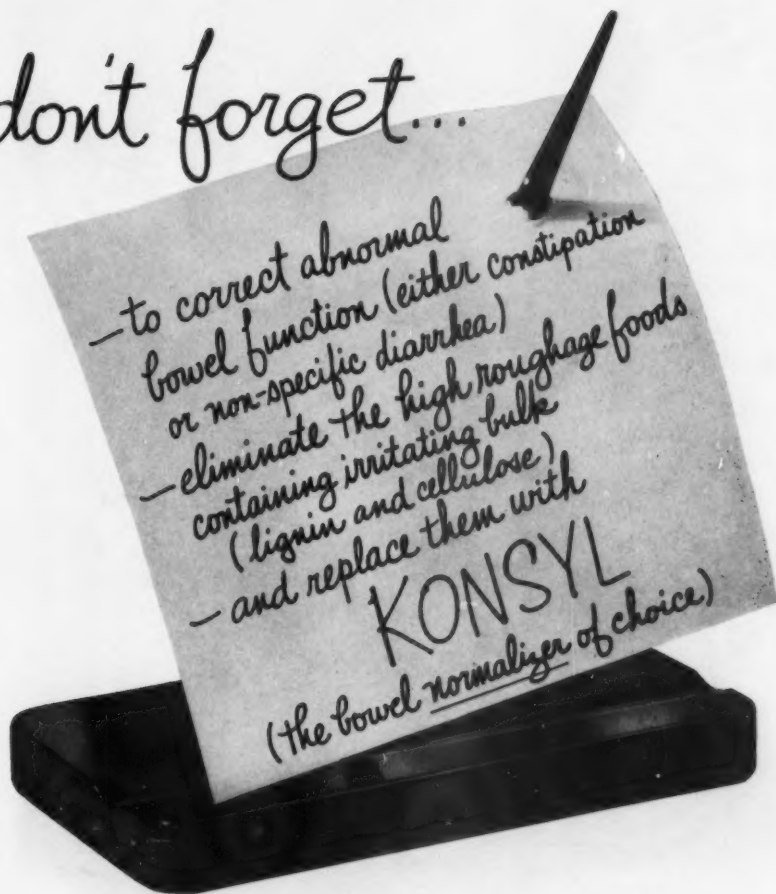 don't forget...
—to correct abnormal
bowel function (either constipation
or non-specific diarrhea)
—eliminate the high roughage foods
containing irritating bulk
(lignin and cellulose)
— and replace them with
KONSYL
(the bowel normalizer of choice)